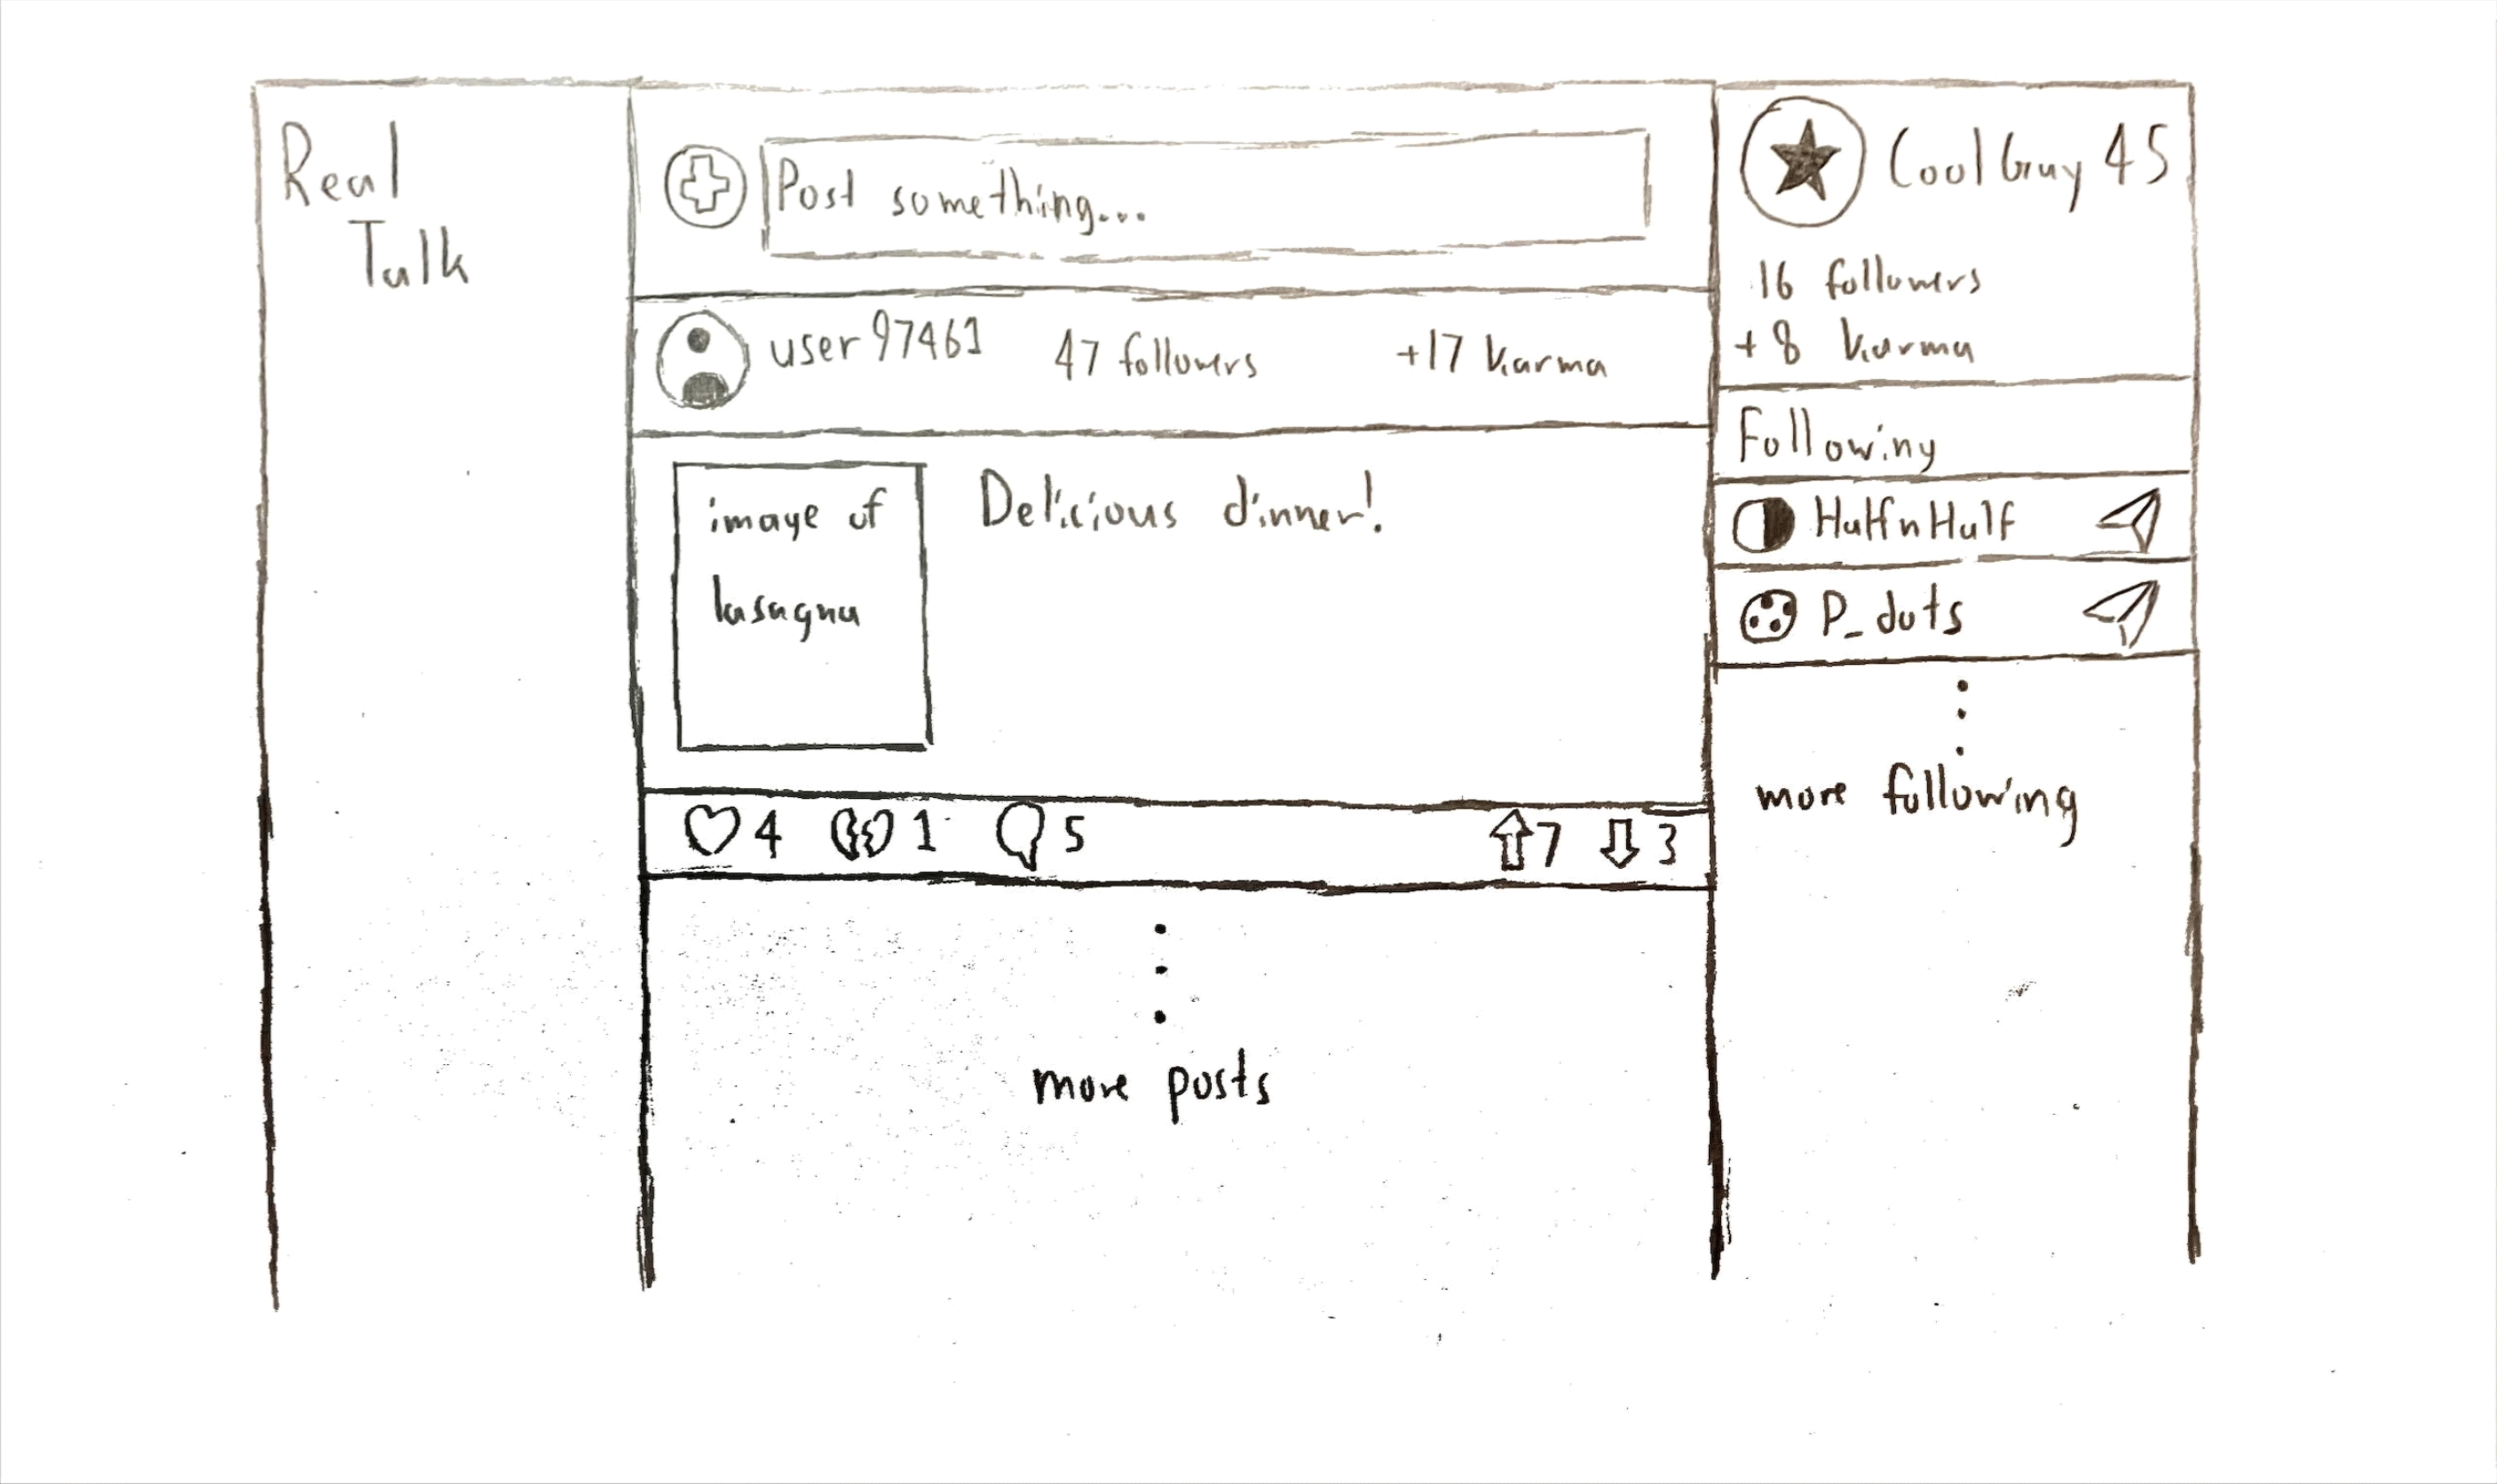 Real
Talk
Post something...
user97461
47 followers
+17 karma
image of
lasagna
Delicious dinner!
4
1
5
7
3
more posts
CoolGuy45
16 followers
+8 karma
Following
HalfnHalf
P_dots
more following